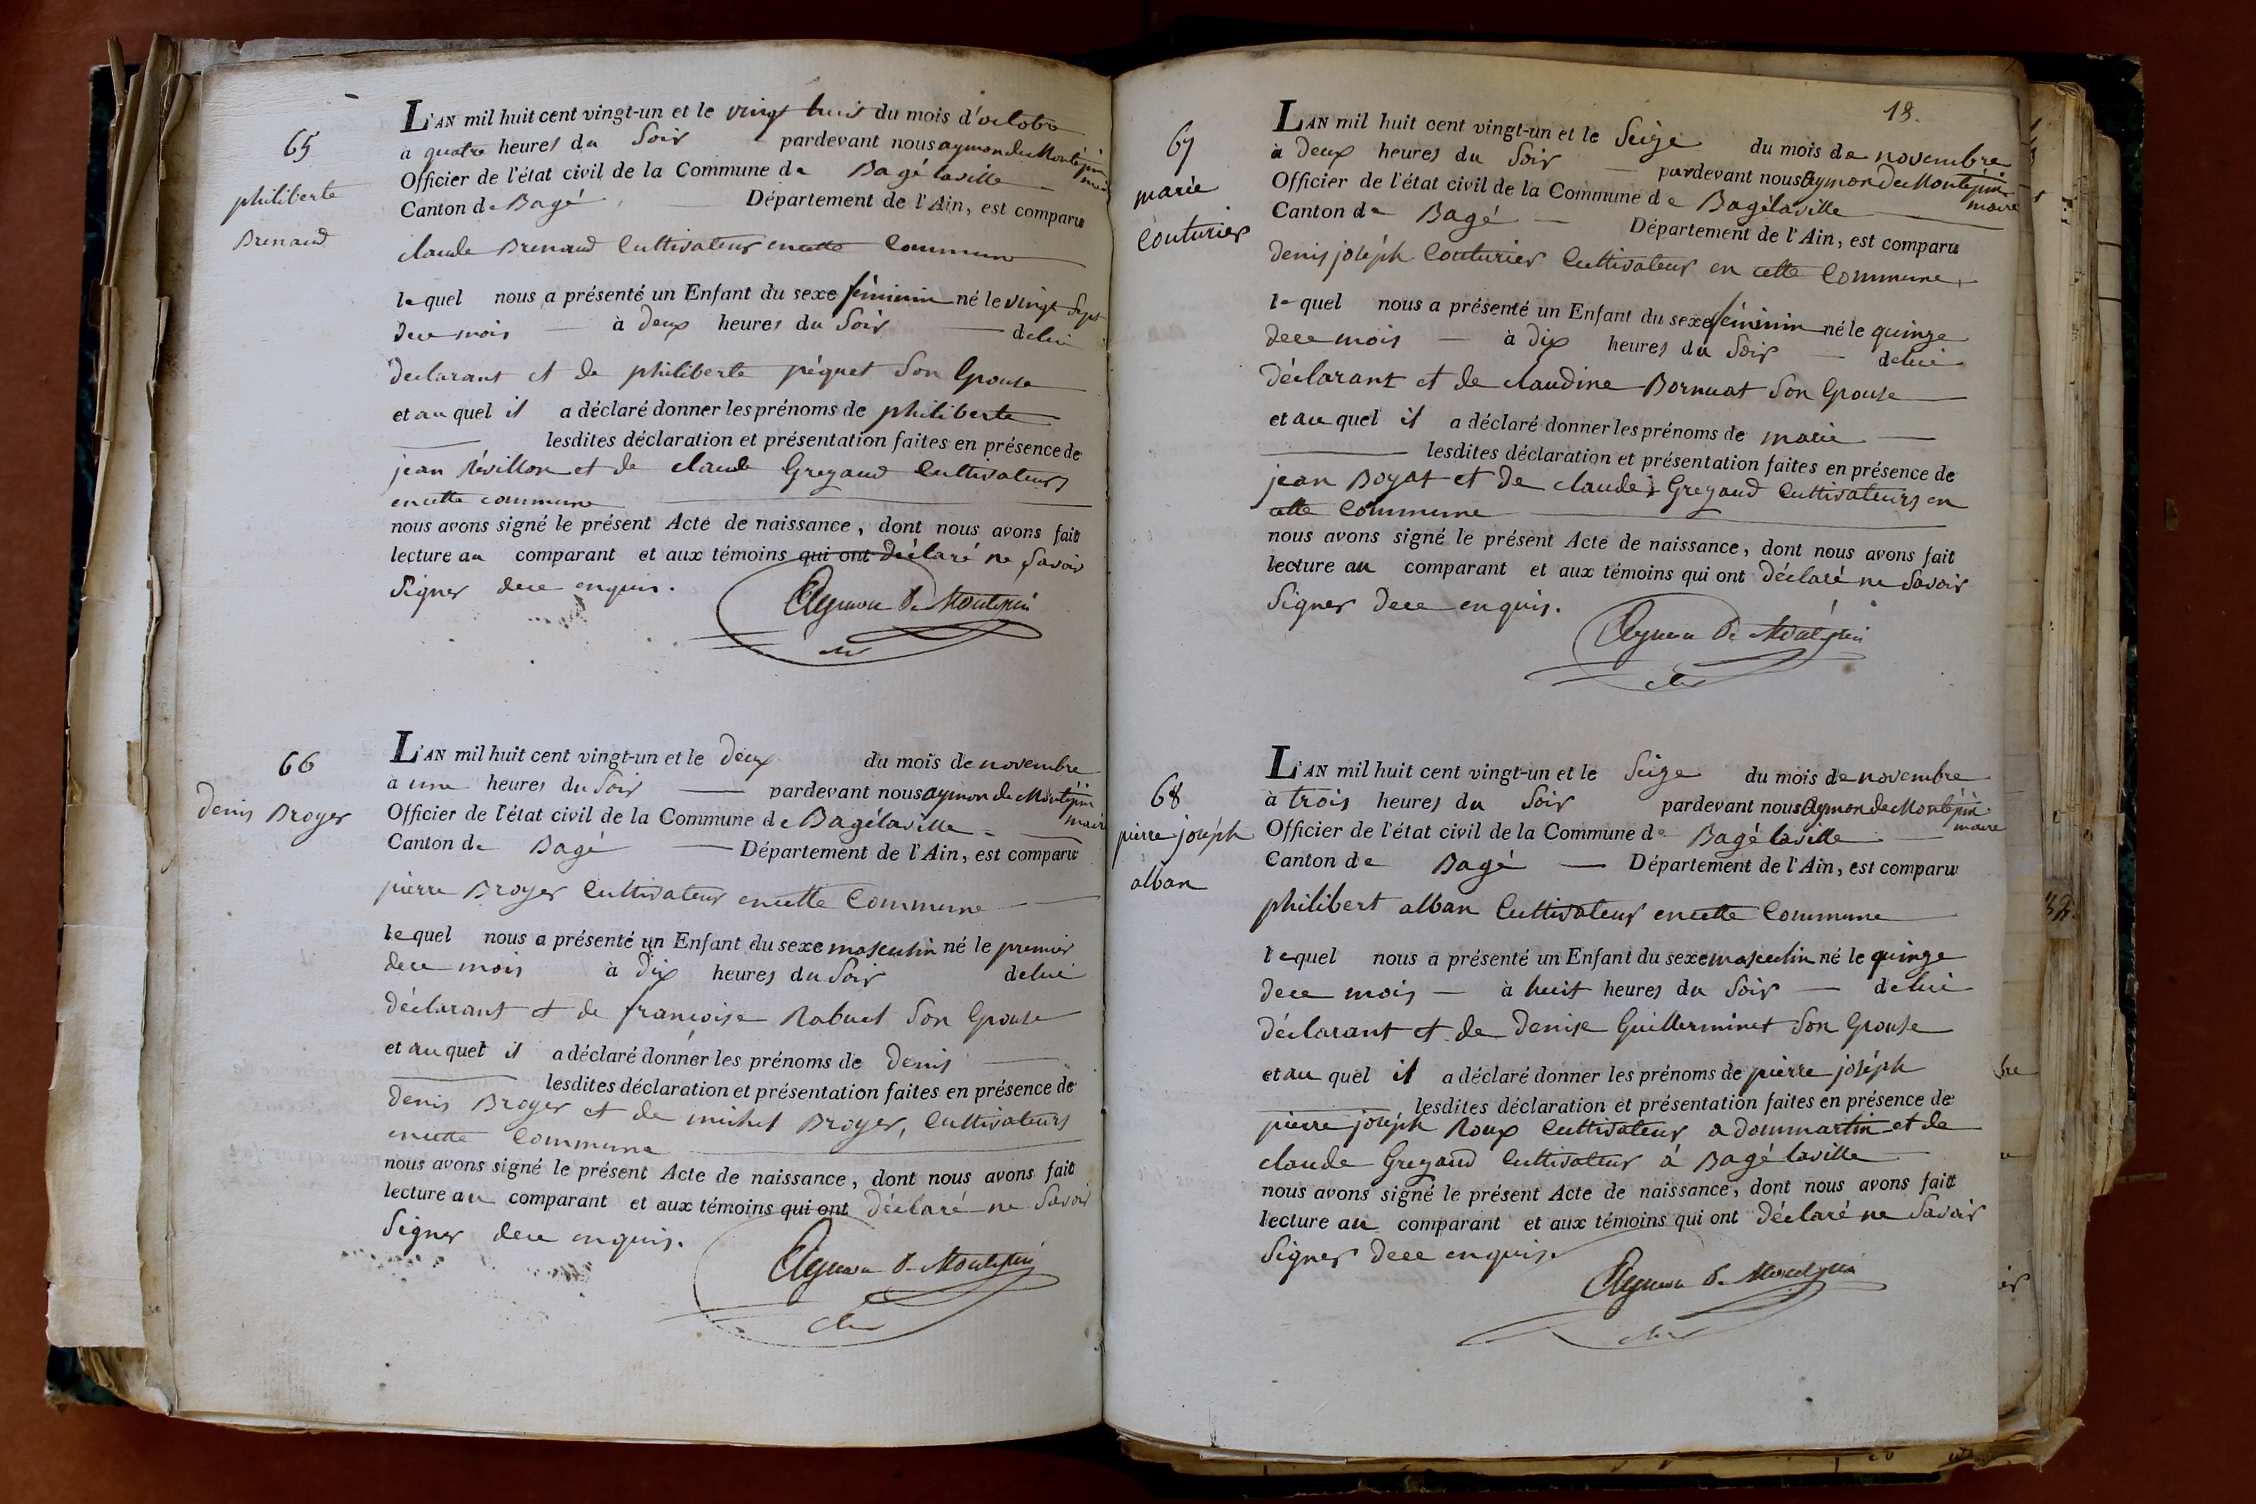 65
philiberte
Brenaud
L'AN mil huit cent vingt-un et le vingt huit du mois d'octobre
à quatre heures du Soir pardevant nous aymon de Montépin
maire
Officier de l'état civil de la Commune de Bagé laville
Canton de Bagé Département de l'Ain, est comparu
claude Brenaud Cultivateur en cette Commune
lequel nous a présenté un Enfant du sexe féminin né le vingt Sept
de ce mois à deux heures du Soir de lui
déclarant et de philiberte péquet Son Epouse
et auquel il a déclaré donner les prénoms de philiberte
lesdites déclaration et présentation faites en présence de
jean Révillon et de claude Gregaud Cultivateurs
en cette commune
nous avons signé le présent Acte de naissance, dont nous avons fait
lecture au comparant et aux témoins qui ont déclaré ne Savoir
Signer de ce enquis.
Aymon De Montépin
66
denis Broyer
L'AN mil huit cent vingt-un et le deux du mois de novembre
à une heures du Soir pardevant nous aymon de Montépin
maire
Officier de l'état civil de la Commune de Bagélaville
Canton de Bagé Département de l'Ain, est comparu
pierre Broyer Cultivateur en cette Commune
lequel nous a présenté un Enfant du sexe masculin né le premier
de ce mois à dix heures du Soir de lui
déclarant et de françoise Rabuel Son Epouse
et auquel il a déclaré donner les prénoms de denis
lesdites déclaration et présentation faites en présence de
denis Broyer et de michel Broyer, Cultivateurs
en cette Commune
nous avons signé le présent Acte de naissance, dont nous avons fait
lecture au comparant et aux témoins qui ont déclaré ne Savoir
Signer de ce enquis.
Aymon De Montépin
18.
67
marie
Couturier
L'AN mil huit cent vingt-un et le Seize du mois de novembre
à deux heures du Soir pardevant nous Aymon de Montépin
maire
Officier de l'état civil de la Commune de Bagélaville
Canton de Bagé Département de l'Ain, est comparu
denis joséph Couturier Cultivateur en cette Commune
lequel nous a présenté un Enfant du sexe féminin né le quinze
de ce mois à dix heures du Soir de lui
déclarant et de claudine Bornuat Son Epouse
et auquel il a déclaré donner les prénoms de marie
lesdites déclaration et présentation faites en présence de
jean Boyat et de claude Gregaud Cultivateurs en
cette Commune
nous avons signé le présent Acte de naissance, dont nous avons fait
lecture au comparant et aux témoins qui ont déclaré ne Savoir
Signer de ce enquis.
Aymon De Montépin
68
pierre joséph
alban
L'AN mil huit cent vingt-un et le Seize du mois de novembre
à trois heures du Soir pardevant nous Aymon de Montépin
maire
Officier de l'état civil de la Commune de Bagé laville
Canton de Bagé Département de l'Ain, est comparu
philibert alban Cultivateur en cette Commune
lequel nous a présenté un Enfant du sexe masculin né le quinze
de ce mois à huit heures du Soir de lui
déclarant et de denise Guillerminet Son Epouse
et au quel il a déclaré donner les prénoms de pierre joséph
lesdites déclaration et présentation faites en présence de
pierre joséph Roux Cultivateur a dommartin et de
claude Gregaud Cultivateur à Bagé laville
nous avons signé le présent Acte de naissance, dont nous avons fait
lecture au comparant et aux témoins qui ont déclaré ne Savoir
Signer de ce enquis.
Aymon De Montépin